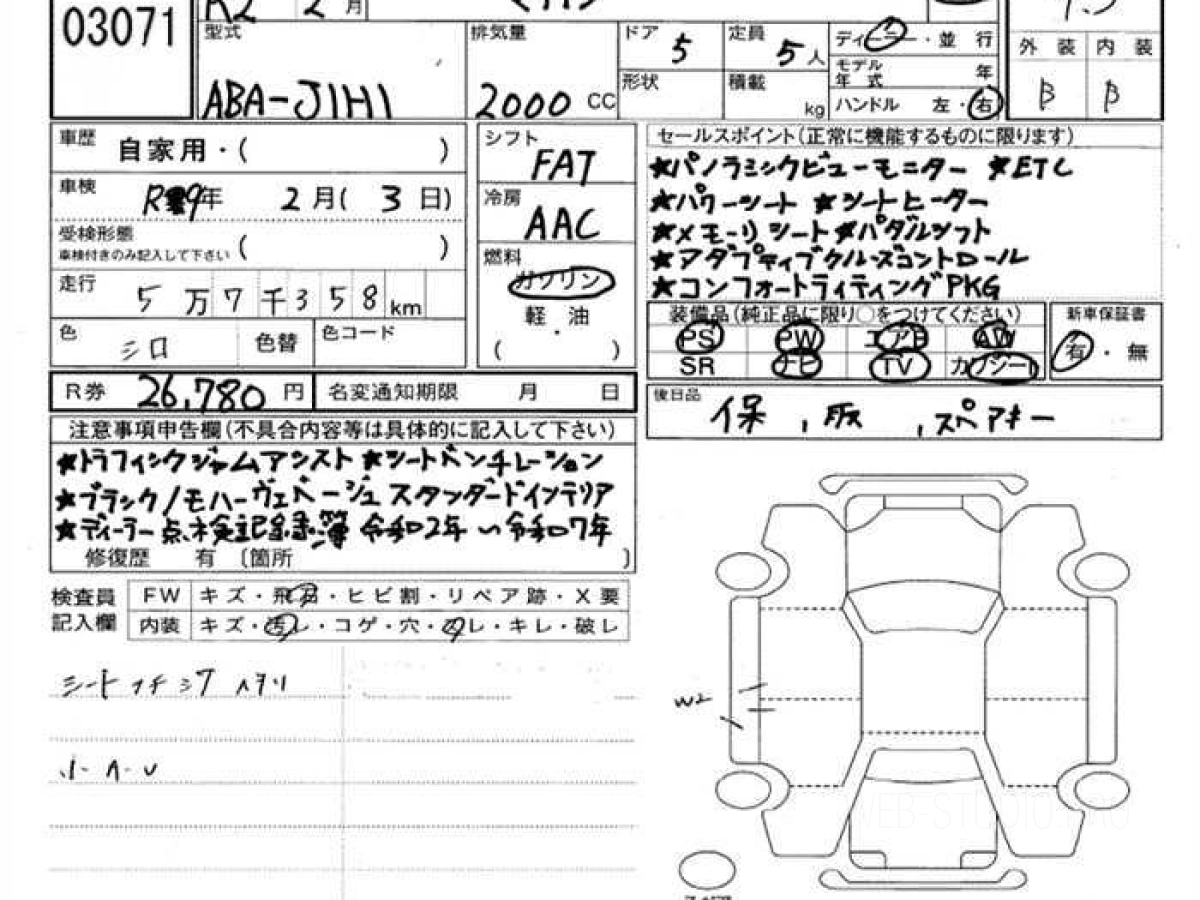 03071
R2 2月
型式 ABA-J1H1
排気量 2000 CC
ドア 5
定員 5人
形状
積載 kg
ディーラー・並行
モデル年式 年
ハンドル 左・右
外装 内装
B B
車歴 自家用・( )
車検 R9年 2月(3日)
受検形態 ( )
車検付きのみ記入して下さい
走行 5万7千358km
色 シロ 色替 色コード
シフト FAT
冷房 AAC
燃料 ガソリン
軽・油
( )
セールスポイント(正常に機能するものに限ります)
★パノラミックビューモニター ★ETC
★パワーシート ★シートヒーター
★メモーリシート ★パダルシフト
★アダプティブクルーズコントロール
★コンフォートライティングPKG
装備品(純正品に限り○をつけてください)
PS PW エアB AW
SR ナビ TV カワシート
新車保証書
有・無
R券 26,780円 名変通知期限 月 日
後日品 保, 取, スペアキー
注意事項申告欄(不具合内容等は具体的に記入して下さい)
★トラフィックジャムアシスト ★シートベンチレーション
★ブラック/モハーヴェベージュ スタンダードインテリア
★ディーラー点検記録簿 令和2年〜令和7年
修復歴 有 〔箇所 〕
検査員記入欄
FW キズ・飛石・ヒビ割・リペア跡・X要
内装 キズ・汚レ・コゲ・穴・凹レ・キレ・破レ
小A・U
W2
WEB-STUDIO.PRO